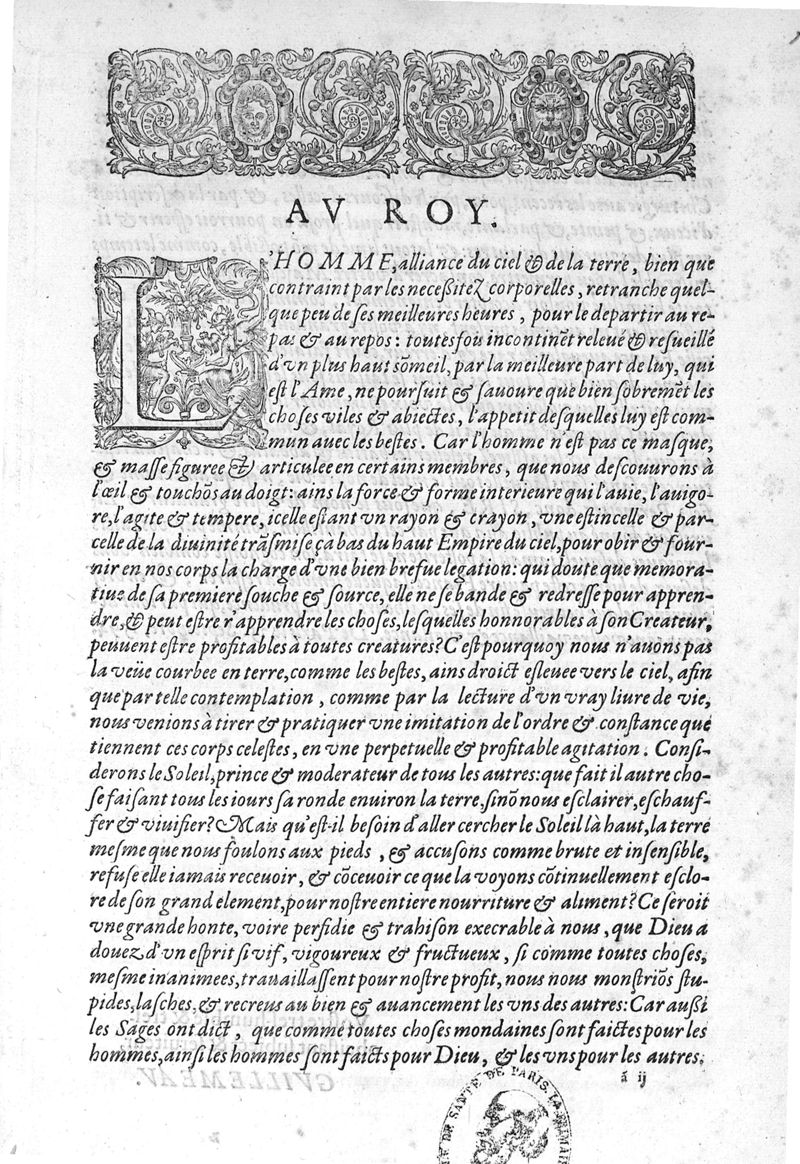 AV ROY.
L'HOMME, alliance du ciel & de la terre, bien que
contraint par les neceßitez corporelles, retranche quel-
que peu de ses meilleures heures, pour le departir au re-
pas & au repos: toutesfois incontinēt releué & resueillé
d'vn plus haut sōmeil, par la meilleure part de luy, qui
est l'Ame, ne poursuit & sauoure que bien sobremēt les
choses viles & abiectes, l'appetit desquelles luy est com-
mun auec les bestes. Car l'homme n'est pas ce masque,
& masse figuree & articulee en certains membres, que nous descouurons à
l'œil & touchōs au doigt: ains la force & forme interieure qui l'auie, l'auigo-
re, l'agite & tempere, icelle estant vn rayon & crayon, vne estincelle & par-
celle de la diuinité trāsmise çà bas du haut Empire du ciel, pour obir & four-
nir en nos corps la charge d'vne bien brefue legation: qui doute que memora-
tiue de sa premiere souche & source, elle ne se bande & redresse pour appren-
dre, & peut estre r'apprendre les choses, lesquelles honnorables à son Createur,
peuuent estre profitables à toutes creatures? C'est pourquoy nous n'auons pas
la veüe courbee en terre, comme les bestes, ains droict esleuee vers le ciel, afin
que par telle contemplation, comme par la lecture d'vn vray liure de vie,
nous venions à tirer & pratiquer vne imitation de l'ordre & constance que
tiennent ces corps celestes, en vne perpetuelle & profitable agitation. Consi-
derons le Soleil, prince & moderateur de tous les autres: que fait il autre cho-
se faisant tous les iours sa ronde enuiron la terre, sinō nous esclairer, eschauf-
fer & viuifier? Mais qu'est-il besoin d'aller cercher le Soleil là haut, la terre
mesme que nous foulons aux pieds, & accusons comme brute et insensible,
refuse elle iamais receuoir, & cōceuoir ce que la voyons cōtinuellement esclo-
re de son grand element, pour nostre entiere nourriture & aliment? Ce seroit
vne grande honte, voire perfidie & trahison execrable à nous, que Dieu a
douez d'vn esprit si vif, vigoureux & fructueux, si comme toutes choses,
mesme inanimees, trauaillassent pour nostre profit, nous nous monstriōs stu-
pides, lasches, & recreus au bien & auancement les vns des autres: Car außi
les Sages ont dict, que comme toutes choses mondaines sont faictes pour les
hommes, ainsi les hommes sont faicts pour Dieu, & les vns pour les autres.
á ij
DE SANTE DE PARIS.